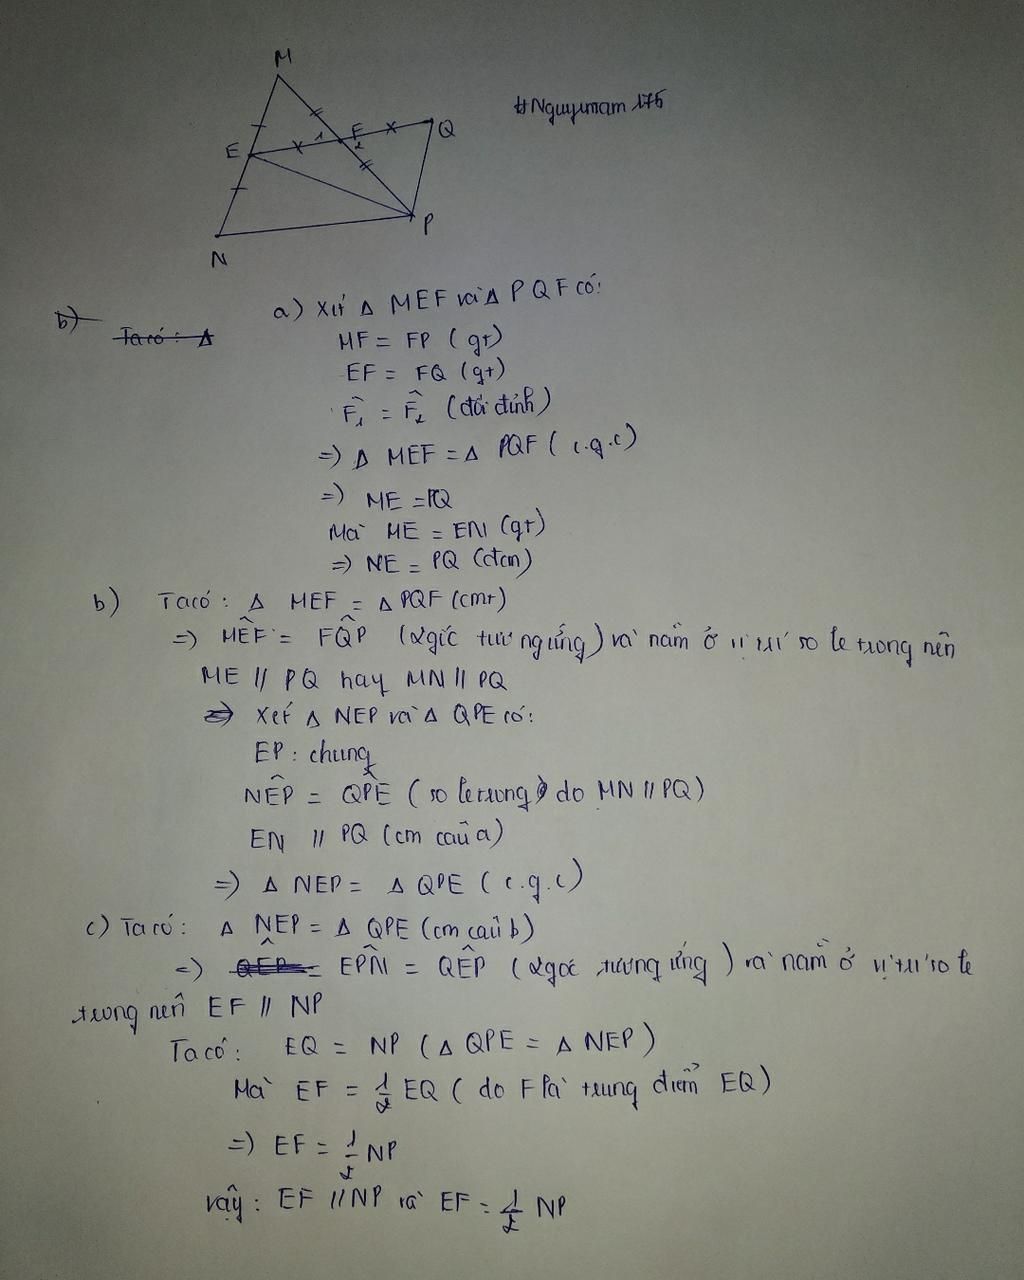 M
#Nguyumam 175
E 1 F 2 Q
P
N
b)
Ta có : Δ
a) Xét Δ MEF và Δ PQF có:
MF = FP (gt)
EF = FQ (gt)
F̂1 = F̂2 (đối đỉnh)
=) Δ MEF = Δ PQF ( c.g.c)
=) ME = PQ
Mà ME = EN (gt)
=) NE = PQ (đcm)
b) Ta có : Δ MEF = Δ PQF (cmt)
=) MÊF = FQ̂P (2 góc tương ứng) và nằm ở vị trí so le trong nên
ME // PQ hay MN // PQ
=) Xét Δ NEP và Δ QPE có:
EP : chung
NÊP = QP̂E ( so le trong do MN // PQ)
EN // PQ (cm câu a)
=) Δ NEP = Δ QPE ( c.g.c)
c) Ta có: Δ NEP = Δ QPE (cm câu b)
=) QÊP = EP̂N = QÊP (2 góc tương ứng ) và nằm ở vị trí so le
trong nên EF // NP
Ta có: EQ = NP ( Δ QPE = Δ NEP )
Mà EF = 1/2 EQ ( do F là trung điểm EQ)
=) EF = 1/2 NP
Vậy : EF // NP và EF = 1/2 NP